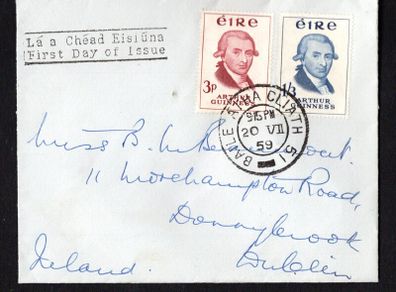 Lá a Chéad Eisiúna
First Day of Issue
éire
3p
ARTHUR
GUINNESS
éire
1/3
ARTHUR
GUINNESS
BAILE ÁTHA CLIATH 51
915PM
20 VII
59
Miss B. M.
11 Morehampton Road,
Donnybrook
Dublin
Ireland.